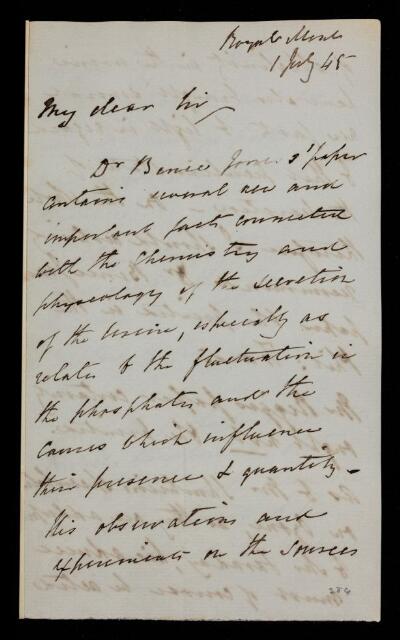 Royal Mint
1 July 45
My dear Sir
Dr Bence Jones's paper
contains several new and
important facts connected
with the Chemistry and
physeology of the secretion
of the Urine, especially as
relates to the fluctuation in
the phosphates and the
causes which influence
their presence & quantity -
His observations and
experiments on the sources
284